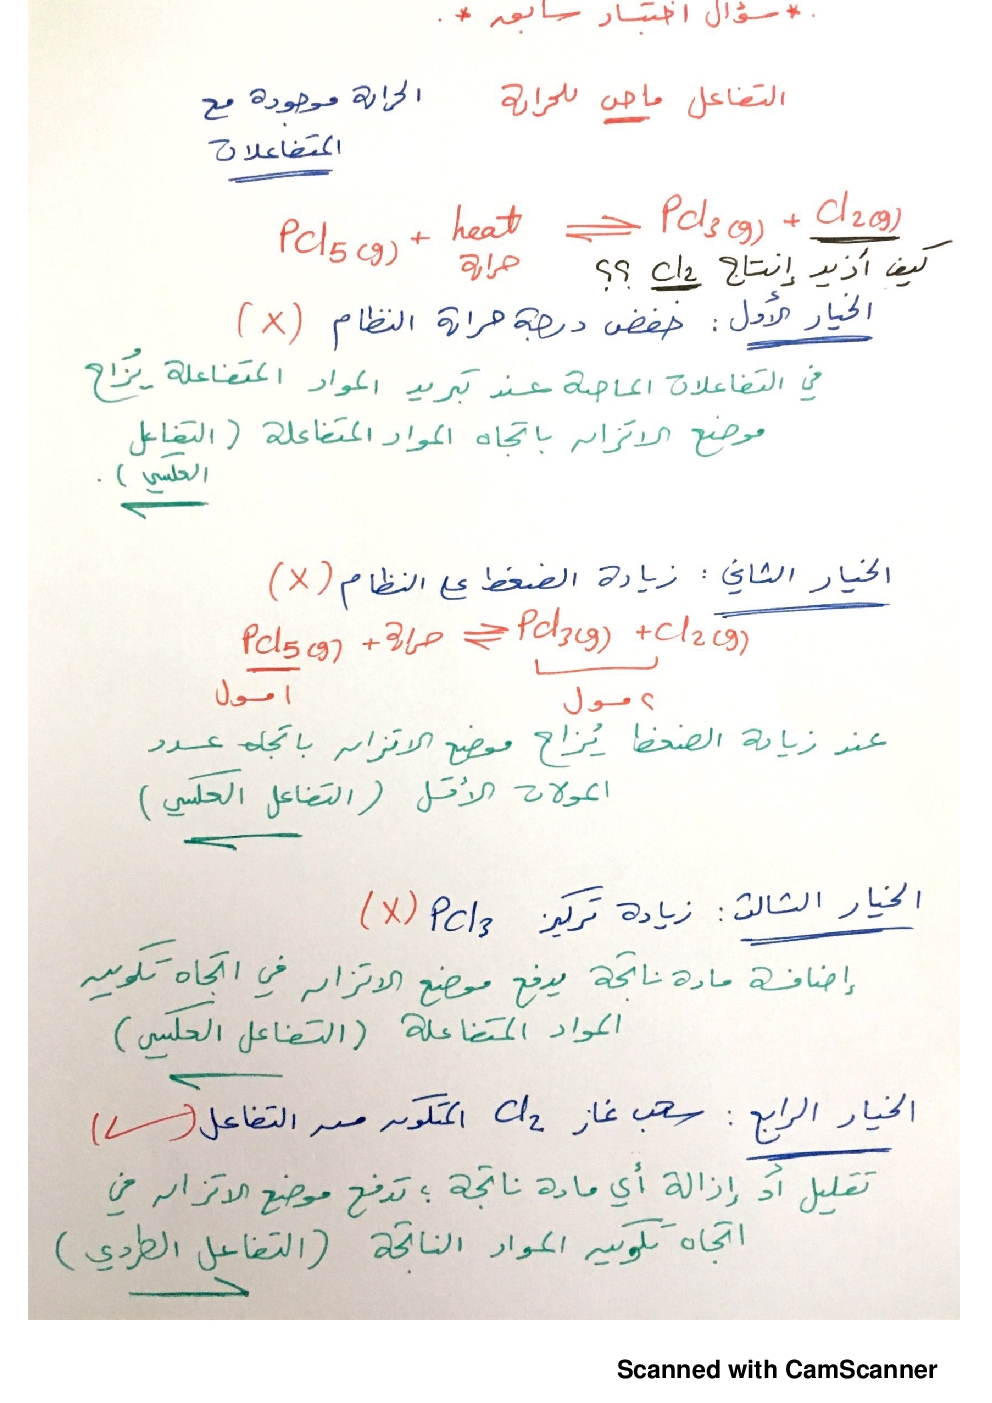 * سؤال اختبار سابق *.
التفاعل ماص للحرارة
الحرارة موجودة مع
المتفاعلات
PCl5(g) + heat ⇌ PCl3(g) + Cl2(g)
حرارة
كيف أزيد إنتاج Cl2 ؟؟
الخيار الأول : خفض درجة حرارة النظام (X)
في التفاعلات الماصة عند تبريد المواد المتفاعلة يُزاح
موضع الاتزان باتجاه المواد المتفاعلة (التفاعل
العكسي).
الخيار الثاني : زيادة الضغط على النظام (X)
PCl5(g) + حرارة ⇌ PCl3(g) + Cl2(g)
١ مول
٢ مول
عند زيادة الضغط يُزاح موضع الاتزان باتجاه عدد
المولات الأقل (التفاعل العكسي)
الخيار الثالث : زيادة تركيز PCl3 (X)
إضافة مادة ناتجة يدفع موضع الاتزان في اتجاه تكوين
المواد المتفاعلة (التفاعل العكسي)
الخيار الرابع : سحب غاز Cl2 المتكون من التفاعل (✓)
تقليل أو إزالة أي مادة ناتجة ؛ تدفع موضع الاتزان في
اتجاه تكوين المواد الناتجة (التفاعل الطردي)
Scanned with CamScanner